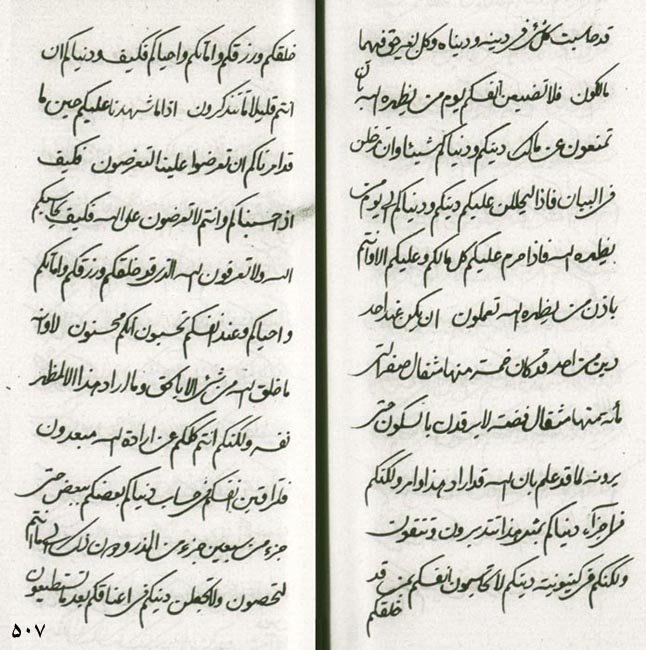 قد حاسبت كل شئ فى دينه و دنياه و كل بغير حق فيهما
مالكون فلا تضيعن انفسكم يوم من يظهره الله بان
تمنعون عن مالك دينكم و دنياكم شيئا و ان تدخلن
فى البيان فاذا ليحللن عليكم دينكم و دنياكم الى يوم من
يظهره الله فاذا حرم عليكم كل مالكم و عليكم الا و انتم
باذن من يظهره الله تعملون ان يكن عند احد
دين من احد قد كان خمسة منها مثقال صفر التى
مأة منها مثقال فضة لا يرقدن بالسكون حتى
يرونه لما قد علم بان الله قد اراد هذا و امر و لكنكم
فى اجزآء دنياكم بمثل هذا تتدبرون و تتقون
ولكنكم فى كينونية دينكم لا تحاسبون انفسكم بمن قد
خلقكم
خلقكم و رزقكم و اماتكم و احياكم فكيف و دنياكم ان
انتم قليلا ما تتذكرون اذا ما شهدنا عليكم حين ما
قد امرناكم ان تعرضوا علينا لتعرضون فكيف
اذ حسبناكم و انتم لا تعرضون على الله فكيف يحاسبكم
الله و لا تعرفون الله الذى قد خلقكم و رزقكم و اماتكم
و احياكم و عند انفسكم تحسبون انكم محسنون لا و الله
ما خلق الله من شئ الا بالحق و ما اراد هذا الا لمظهر
نفسه ولكنكم انتم كلكم عن ارادة الله مبعدون
فلتراقبن انفسكم فى حساب دنياكم بعضكم ببعض حتى
جزء من سبعين جزء من الذر و دون ذلك الى ما انتم
لتحصون و لا تجعلن دينكم فى اعناقكم بعد ما تستطيعون
۵۰۷